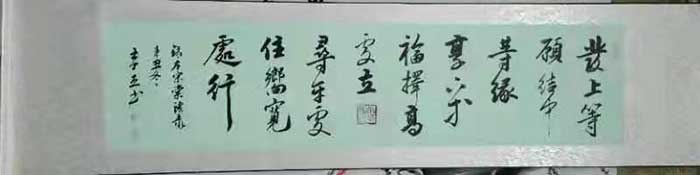 發上等
願結中
等緣
享下等
福擇高
處立
尋平處
住嚮寬
處行
錄左宗棠
辛丑冬